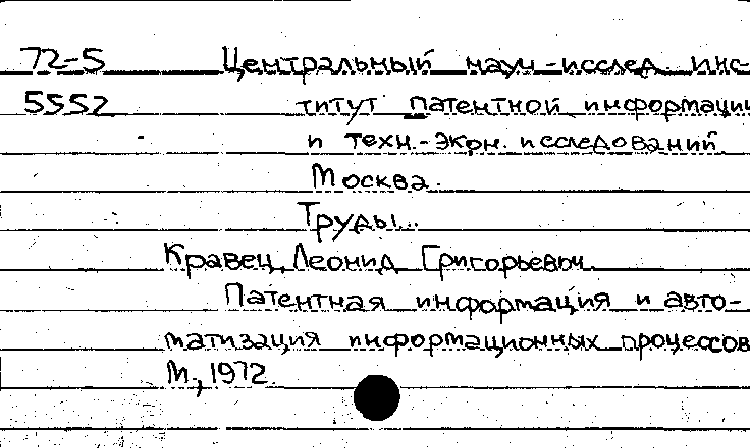 72-5 Центральный науч-исслед. инс-
5552 титут патентной информации
и техн.-экон. исследований.
Москва.
Труды...
Кравец, Леонид Григорьевич.
Патентная информация и авто-
матизация информационных процессов
М., 1972.